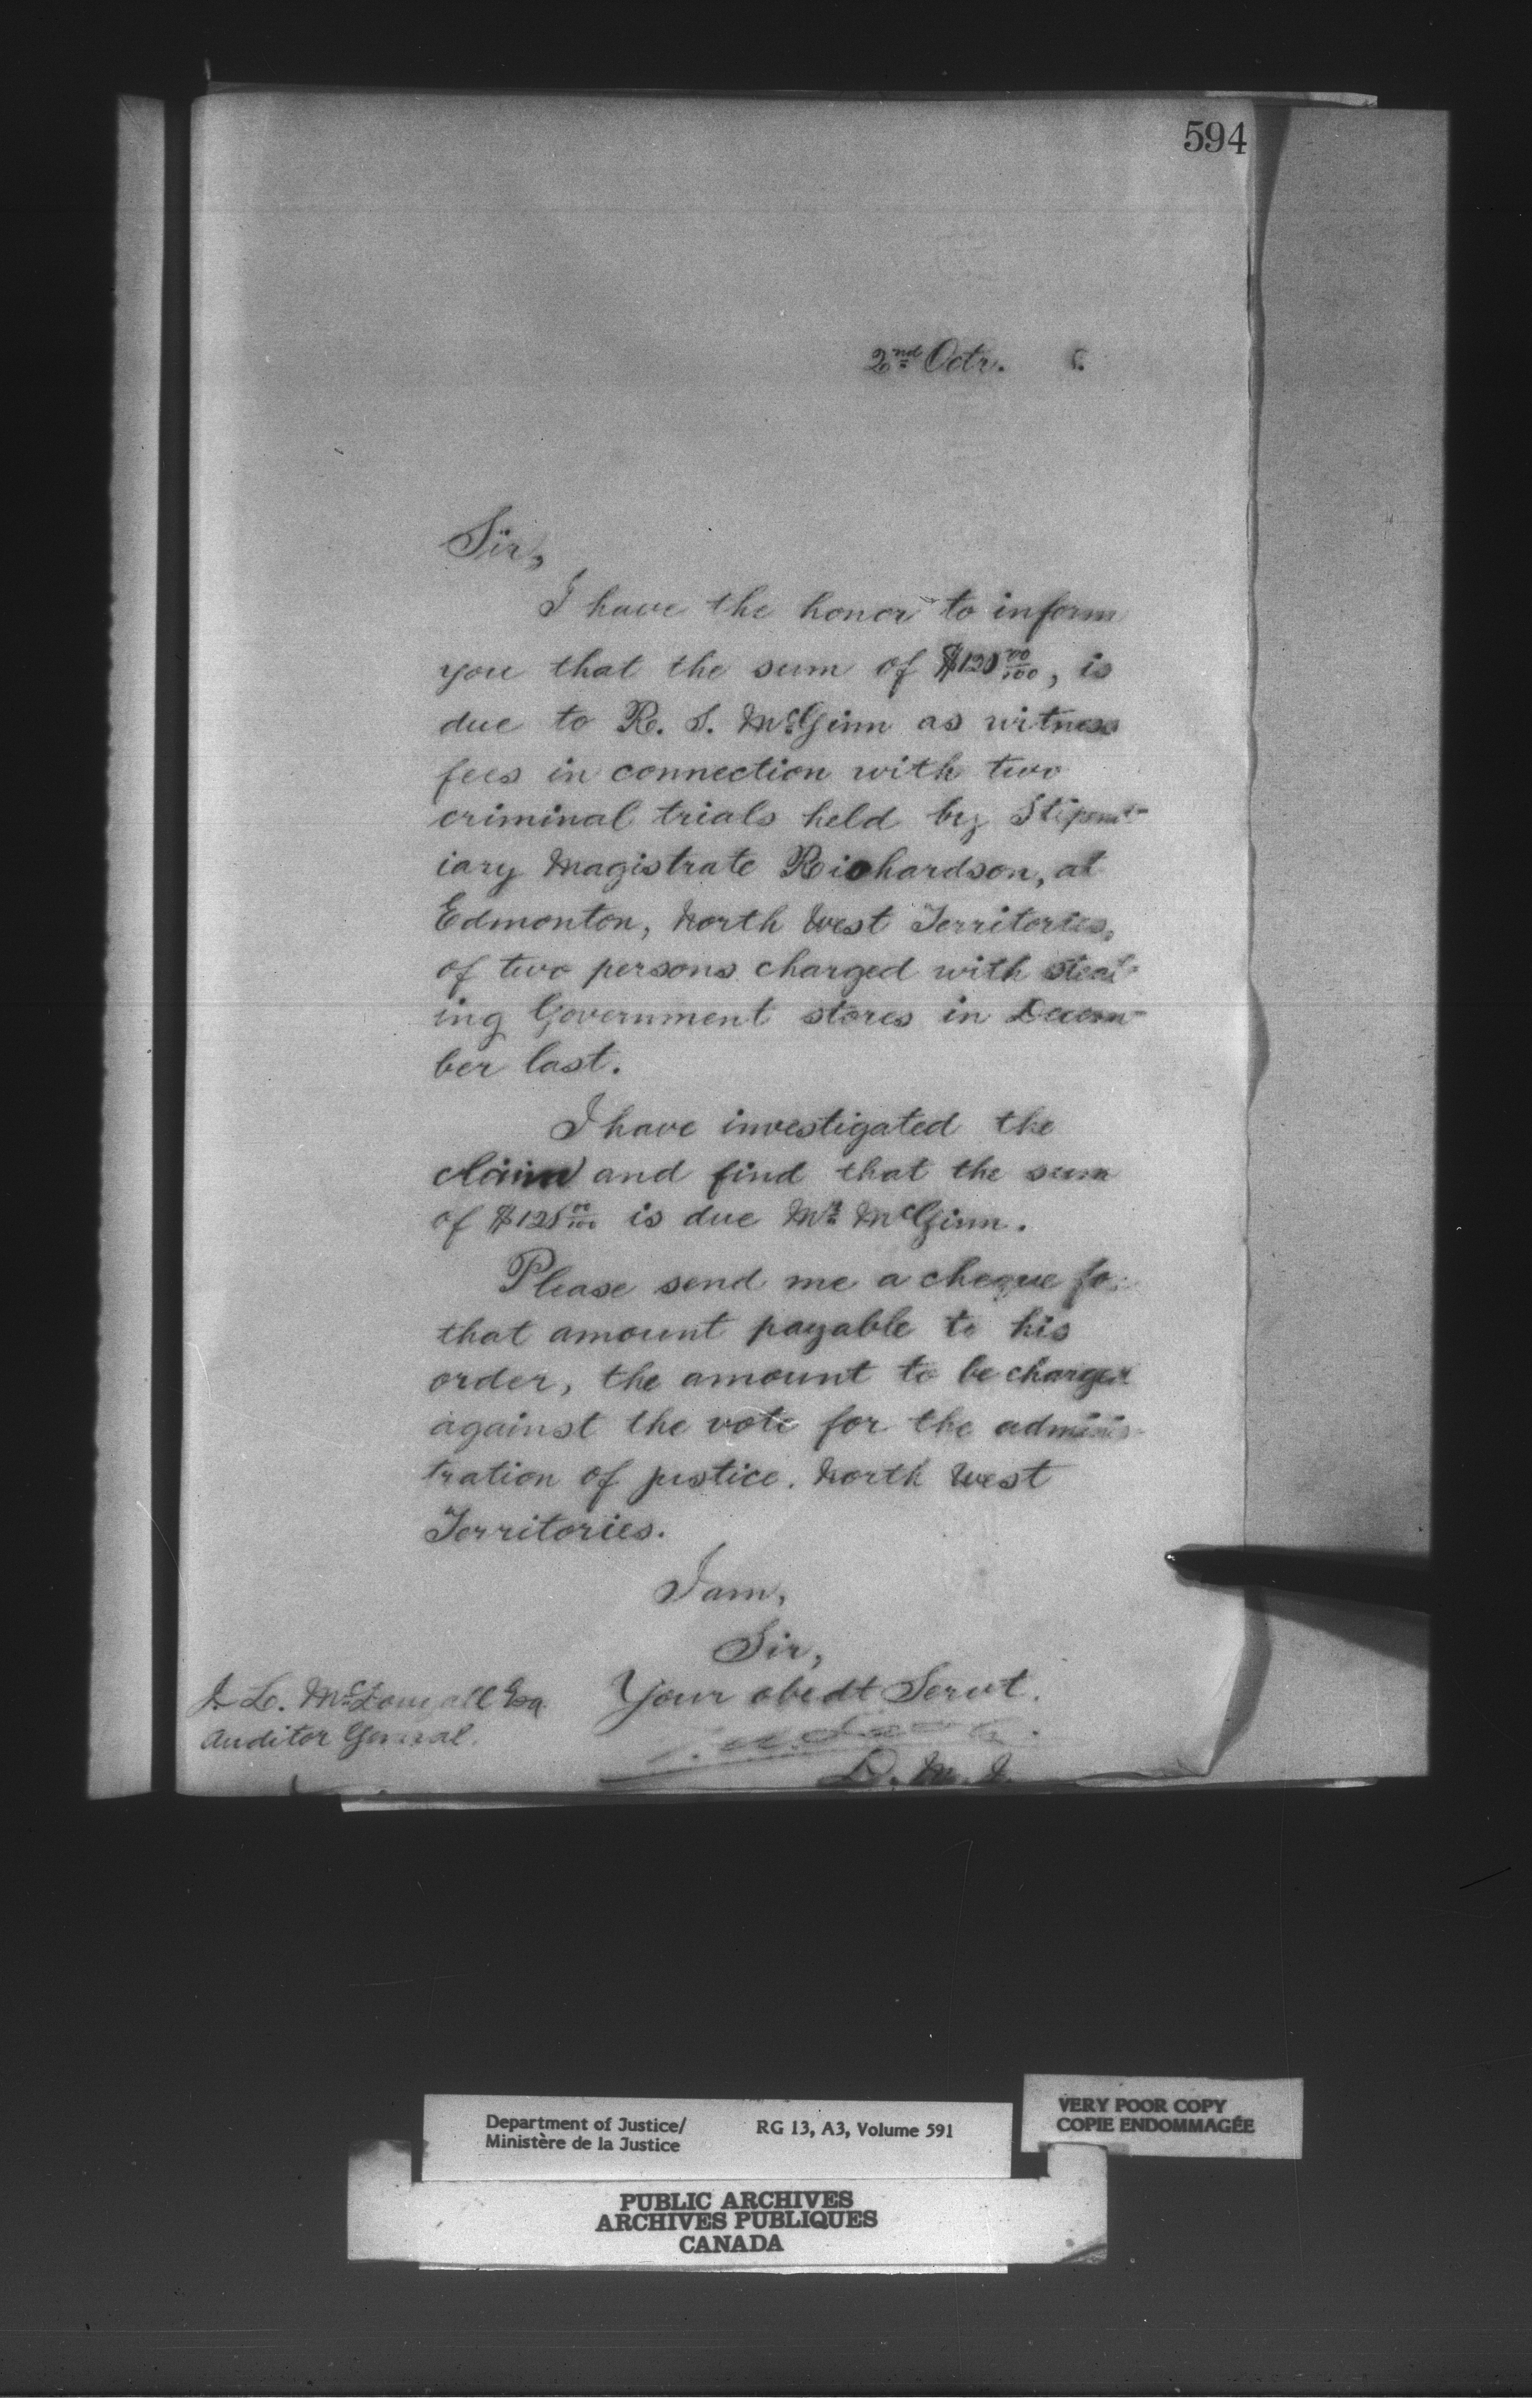 594
2nd Octr. 6.
Sir,
I have the honor to inform
you that the sum of $128 00/100, is
due to R. S. McGinn as witness
fees in connection with two
criminal trials held by Stipend-
iary Magistrate Richardson, at
Edmonton, North West Territories,
of two persons charged with steal-
ing Government stores in Decem-
ber last.
I have investigated the
claim and find that the sum
of $128 00/100 is due Mr. McGinn.
Please send me a cheque for
that amount payable to his
order, the amount to be charged
against the vote for the adminis-
tration of justice. North West
Territories.
I am,
Sir,
Your obedt Servt.
J. L. McDougall Esq
Auditor General.
D. M. J.
Department of Justice/
Ministère de la Justice
RG 13, A3, Volume 591
VERY POOR COPY
COPIE ENDOMMAGÉE
PUBLIC ARCHIVES
ARCHIVES PUBLIQUES
CANADA